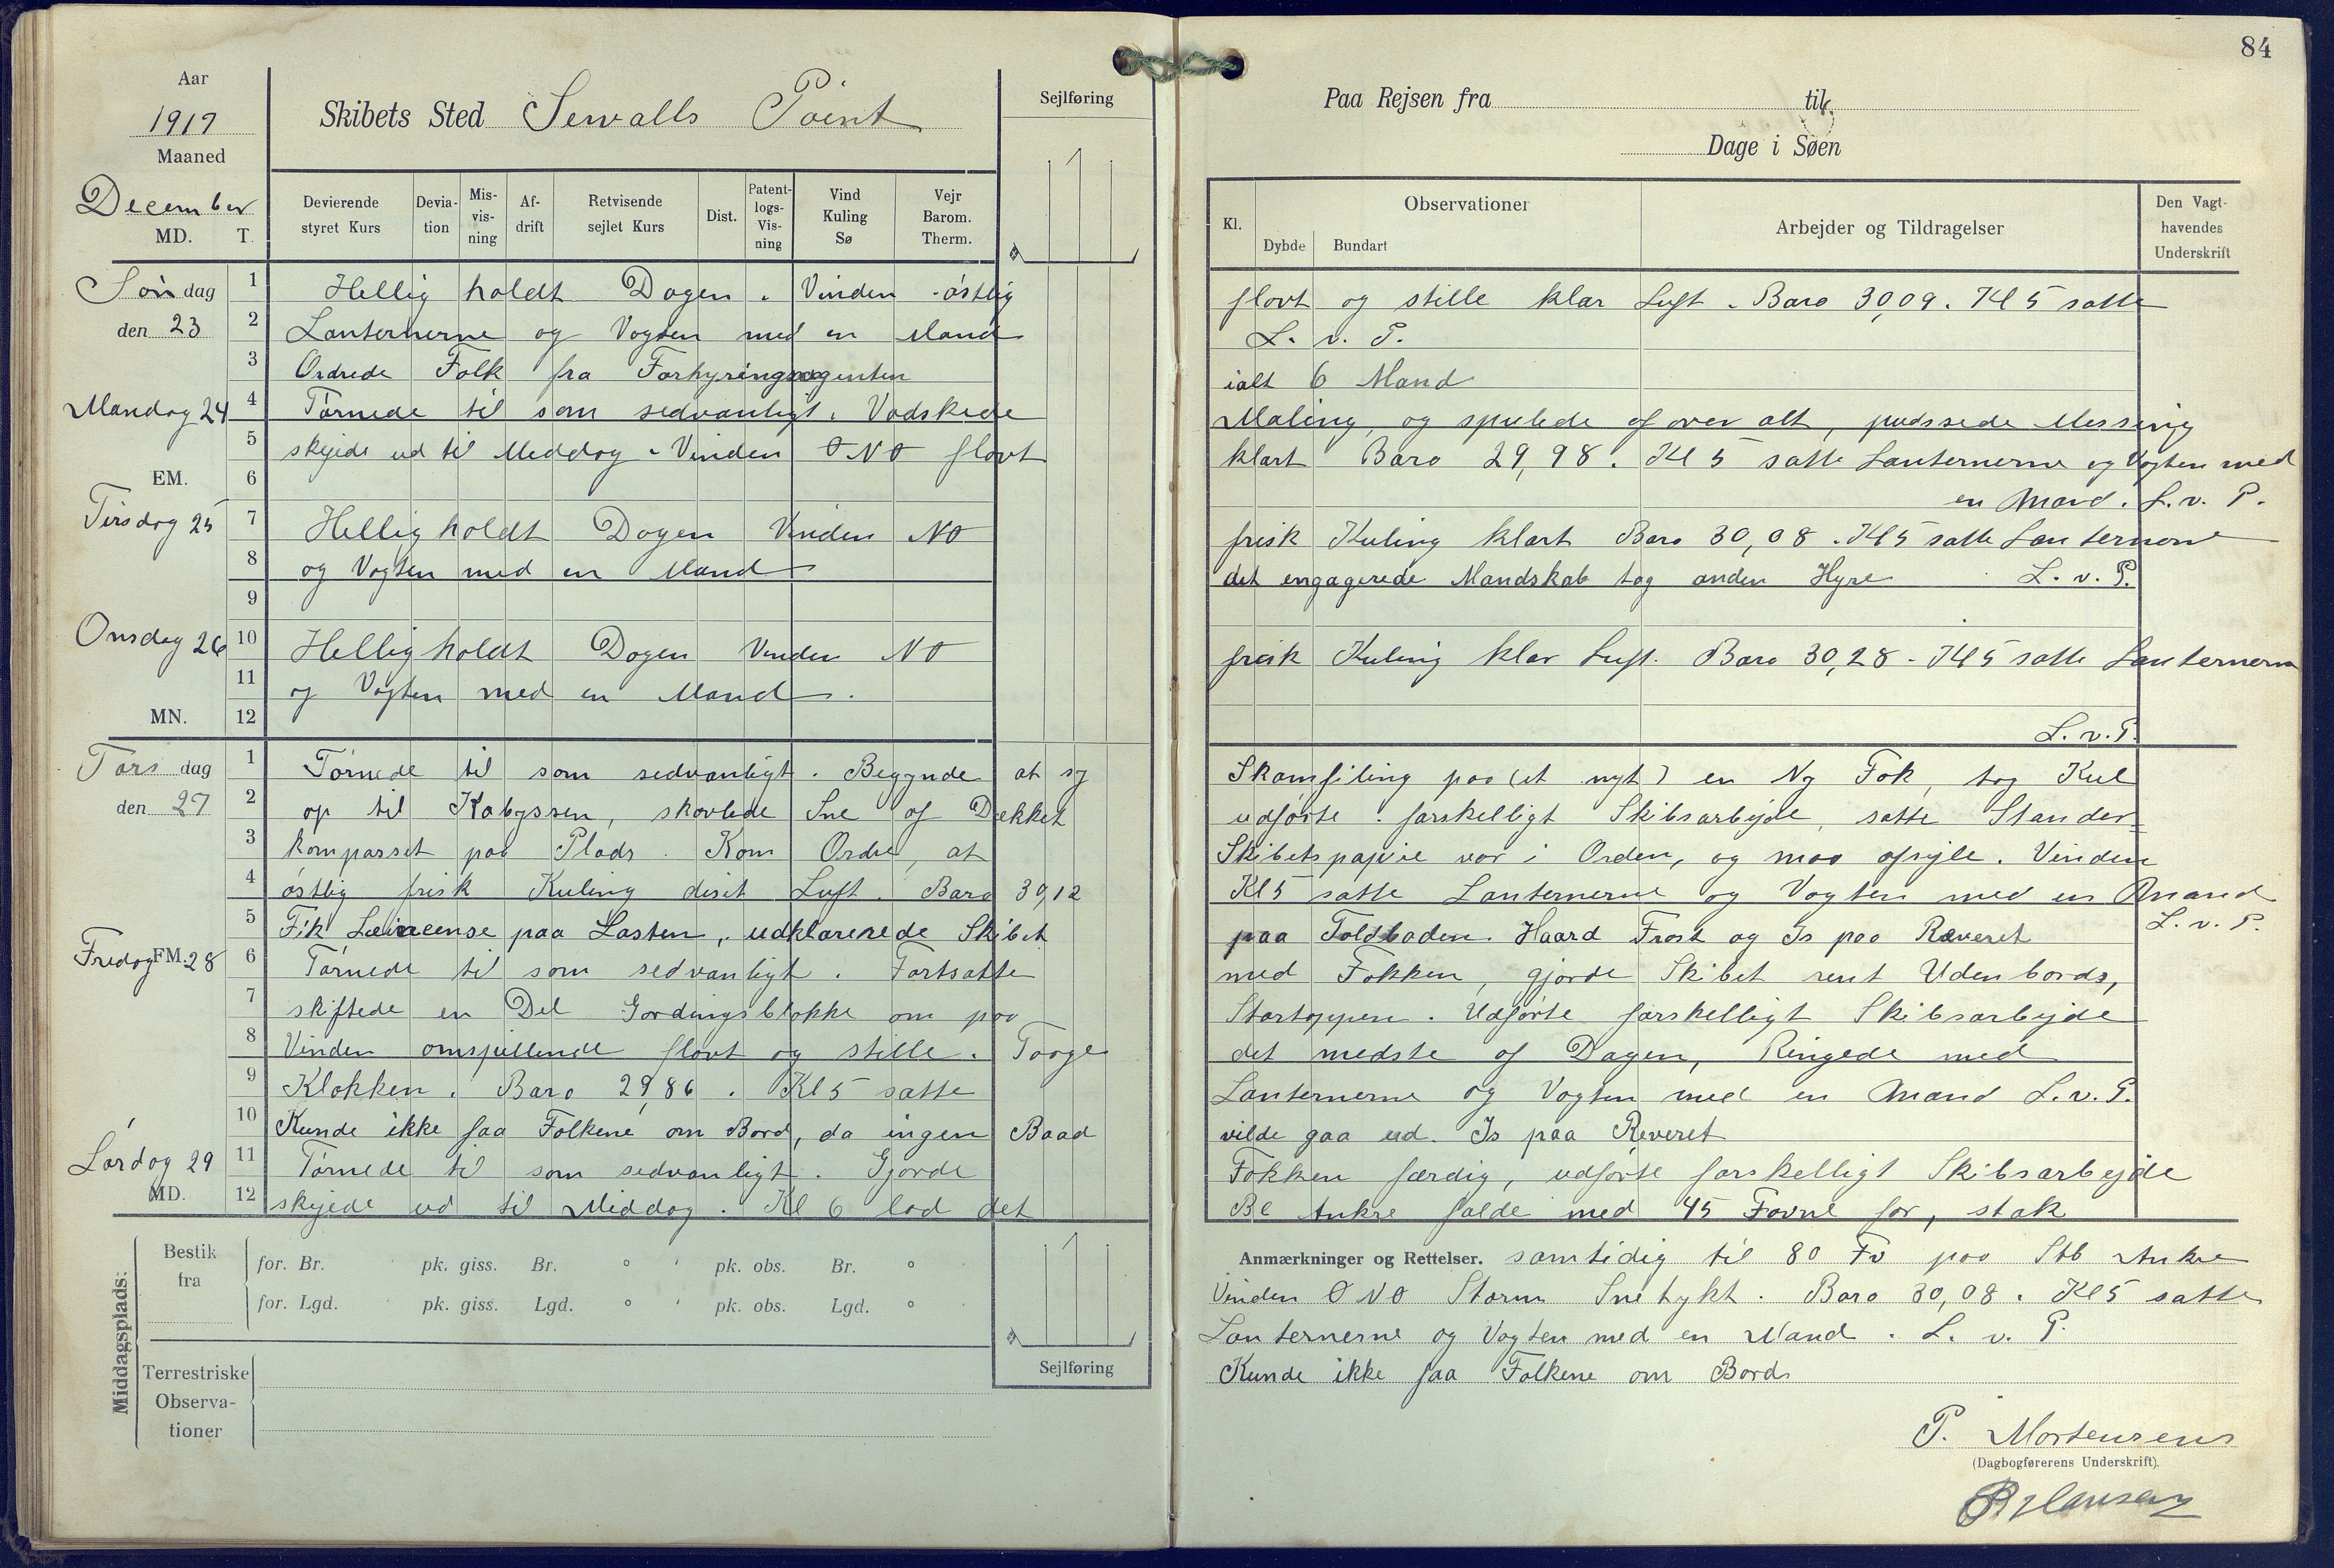 84
Aar
1917
Maaned
December
MD. T.
Skibets Sted Sewalls Point
Sejlføring
Paa Rejsen fra til
Dage i Søen
Devierende styret Kurs
Devia-tion
Mis-vis-ning
Af-drift
Retvisende sejlet Kurs
Dist.
Patent-logs-Vis-ning
Vind Kuling Sø
Vejr Barom. Therm.
Kl.
Observationer
Dybde Bundart
Arbejder og Tildragelser
Den Vagt-havendes Underskrift
Søndag 1 Hellig holdt Dagen. Vinden østlig flovt og stille klar Luft. Baro 30,09. Kl 5 satte
den 23 2 Lanternerne og Vagten med en Mand L. v. P.
3 Ordrede Folk fra Forhyringsagenten ialt 6 Mand
Mandag 24 4 Tørnede til som sedvanligt. Vadskede Maling, og spulede af over alt, pudssede Messing
5 skejede ud til Meddag. Vinden ONO flovt klart Baro 29,98. Kl 5 satte Lanternerne og Vagten med
EM. 6 en Mand. L. v. P.
Tirsdag 25 7 Hellig holdt Dagen Vinden NO frisk Kuling klart Baro 30,08. Kl 5 satte Lanternerne
8 og Vagten med en Mand det engagerede Mandskab tog anden Hyre L. v. P.
9
Onsdag 26 10 Hellig holdt Dagen Vinden NO frisk Kuling klar Luft. Baro 30,28. Kl 5 satte Lanternerne
11 og Vagten med en Mand.
MN. 12 L. v. P.
Torsdag 1 Tørnede til som sedvanligt. Begynde at sy Skamfiling paa (et nyt) en Ny Fok, tog Kul
den 27 2 op til Kabyssen, skovlede Sne af Dækket udførte forskelligt Skibsarbejde, satte Stander=
3 kompasset paa Plads. Kom Ordre, at Skibetspapire var i Orden, og maa afsejle. Vinden
4 østlig frisk Kuling diset Luft. Baro 30,12 Kl 5 satte Lanternerne og Vagten med en Mand
5 Fik Leiceense paa Lasten, udklarerede Skibet paa Toldboden. Haard Frost og Is paa Raveret L. v. P.
Fredag FM. 28 6 Tørnede til som sedvanligt. Fortsatte med Fokken, gjorde Skibet rent Udenbords,
7 skiftede en Del Gordingsblokke om paa Stortoppen. Udførte forskelligt Skibsarbejde
8 Vinden omspillende flovt og stille. Taage det medste af Dagen, Ringede med
9 Klokken. Baro 29,86. Kl 5 satte Lanternerne og Vagten med en Mand L. v. P.
10 Kunde ikke faa Folkene om Bord, da ingen Baad vilde gaa ud. Is paa Reveret
Lørdag 29 11 Tørnede til som sedvanligt. Gjorde Fokken færdig, udførte forskelligt Skibsarbejde
MD. 12 skejede ud til Middag. Kl 6 lod det BB Ankre falde med 45 Favne for, stak
Anmærkninger og Rettelser. samtidig til 80 Fv paa Stb Ankre
Vinden ONO Storm Snetykt. Baro 30,08. Kl 5 satte
Lanternerne og Vagten med en Mand. L. v. P.
Kunde ikke faa Folkene om Bord
Middagsplads:
Bestik fra
for. Br. pk. giss. Br. ° ' pk. obs. Br. °
for. Lgd. pk. giss. Lgd. ° ' pk. obs. Lgd. °
Terrestriske Observa-tioner
Sejlføring
P. Mortensens
(Dagbogførerens Underskrift).